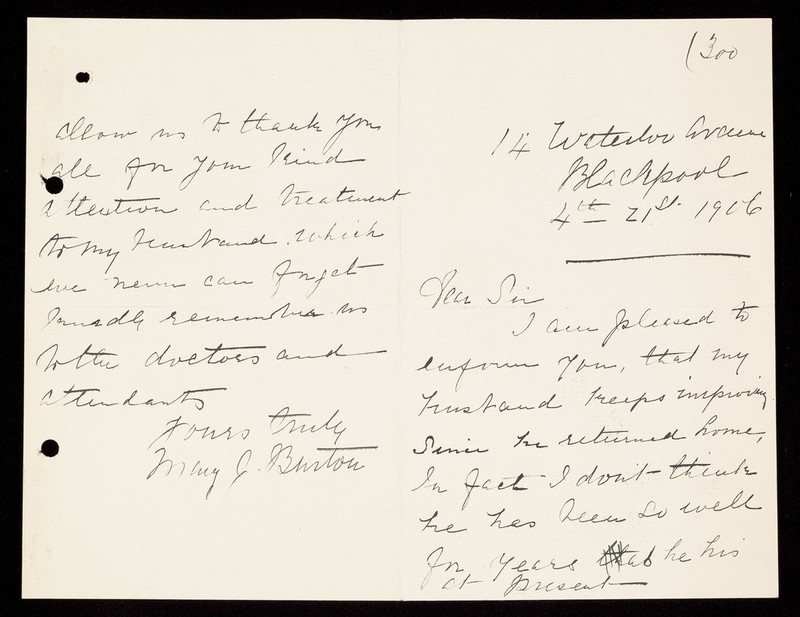 (300
14 Waterloo Avenue
Blackpool
4th 21st 1906
Dear Sir
I am pleased to
enform you, that my
husband keeps improving
Since he returned home,
In fact I don't think
he has been so well
for years he his
at present
allow us to thank you
all for your kind
attention and treatment
to my husband. Which
we never can forget
kindly remember us
to the doctors and
attendants
Yours truly
Mary J. Burton